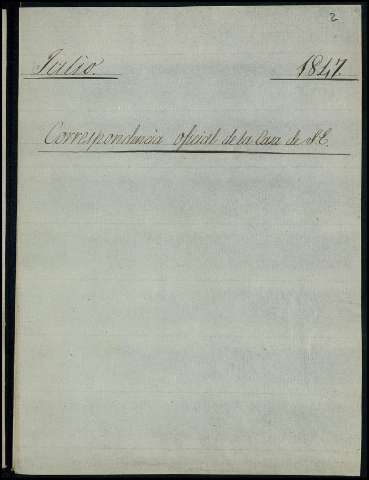 2
Julio. 1847.
Correspondencia oficial de la Casa de S.E.